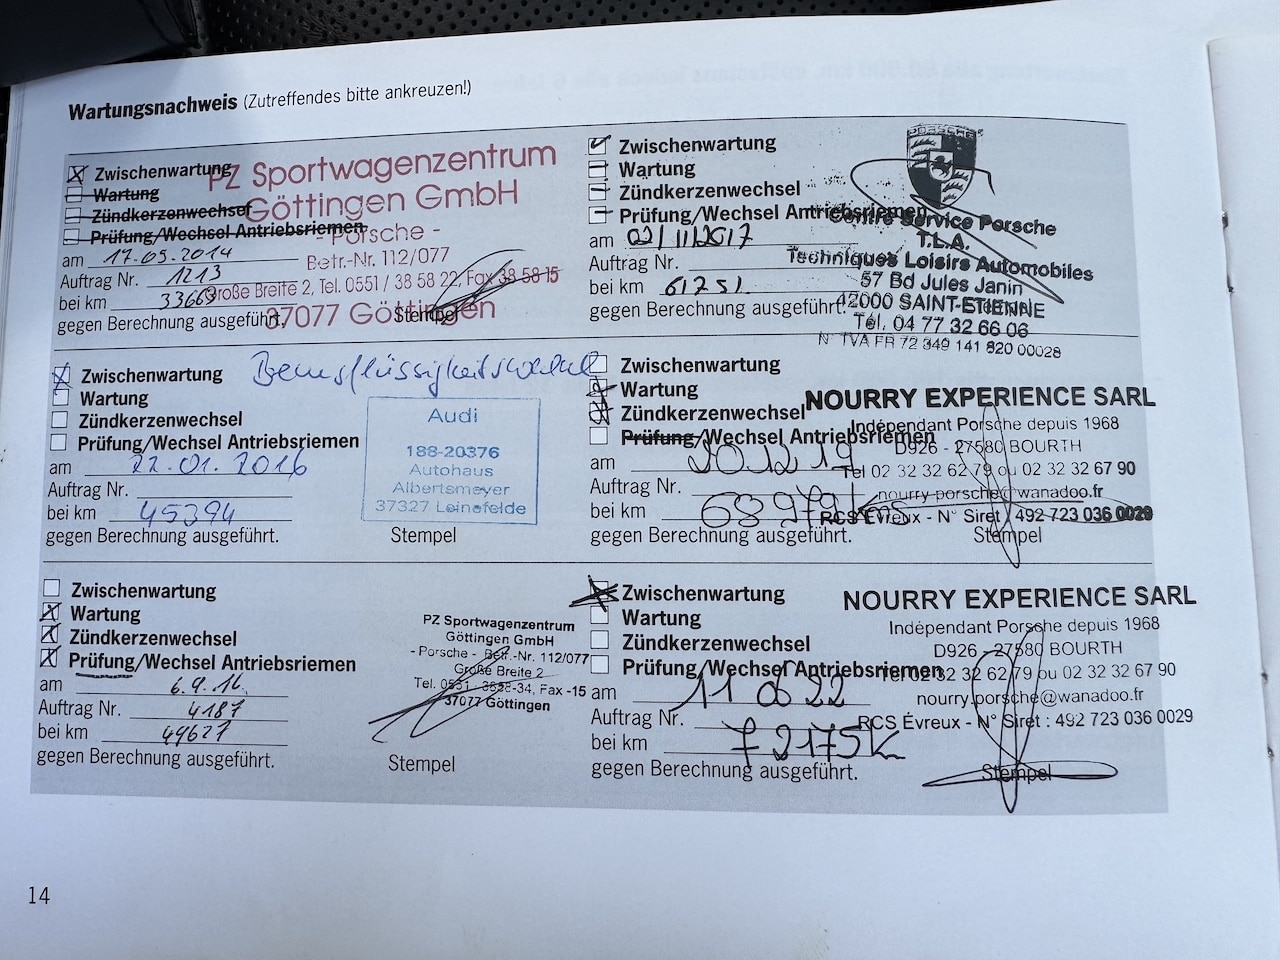 Wartungsnachweis (Zutreffendes bitte ankreuzen!)
Zwischenwartung
Wartung
Zündkerzenwechsel
Prüfung/Wechsel Antriebsriemen
am 17.09.2014
Auftrag Nr. 1213
bei km 33669
gegen Berechnung ausgeführt.
Stempel
PZ Sportwagenzentrum
Göttingen GmbH
- Porsche -
Betr.-Nr. 112/077
Große Breite 2, Tel. 0551 / 38 58 22, Fax 38 58 15
37077 Göttingen
Zwischenwartung
Wartung
Zündkerzenwechsel
Prüfung/Wechsel Antriebsriemen
am 22.01.2016
Auftrag Nr.
bei km 45394
gegen Berechnung ausgeführt.
Stempel
Audi
188-20376
Autohaus
Albertsmeyer
37327 Leinefelde
Zwischenwartung
Wartung
Zündkerzenwechsel
Prüfung/Wechsel Antriebsriemen
am 6.9.16
Auftrag Nr. 4187
bei km 49627
gegen Berechnung ausgeführt.
Stempel
PZ Sportwagenzentrum
Göttingen GmbH
- Porsche - Betr.-Nr. 112/077
Große Breite 2
Tel. 0551 - 3858-34, Fax -15
37077 Göttingen
Zwischenwartung
Wartung
Zündkerzenwechsel
Prüfung/Wechsel Antriebsriemen
am 02/11/2017
Auftrag Nr.
bei km 61251
gegen Berechnung ausgeführt.
PORSCHE
Centre Service Porsche
T.L.A.
Techniques Loisirs Automobiles
57 Bd Jules Janin
42000 SAINT-ETIENNE
Tél. 04 77 32 66 06
N° TVA FR 72 349 141 820 00028
Zwischenwartung
Wartung
Zündkerzenwechsel
Prüfung/Wechsel Antriebsriemen
am 20 12 19
Auftrag Nr.
bei km 68979 kms
gegen Berechnung ausgeführt.
Stempel
NOURRY EXPERIENCE SARL
Indépendant Porsche depuis 1968
D926 - 27580 BOURTH
Tel 02 32 32 62 79 ou 02 32 32 67 90
nourry-porsche@wanadoo.fr
RCS Évreux - N° Siret : 492 723 036 0029
Zwischenwartung
Wartung
Zündkerzenwechsel
Prüfung/Wechsel Antriebsriemen
am 11 08 22
Auftrag Nr.
bei km 72175K
gegen Berechnung ausgeführt.
Stempel
NOURRY EXPERIENCE SARL
Indépendant Porsche depuis 1968
D926 - 27580 BOURTH
Tel 02 32 32 62 79 ou 02 32 32 67 90
nourry.porsche@wanadoo.fr
RCS Évreux - N° Siret : 492 723 036 0029
14